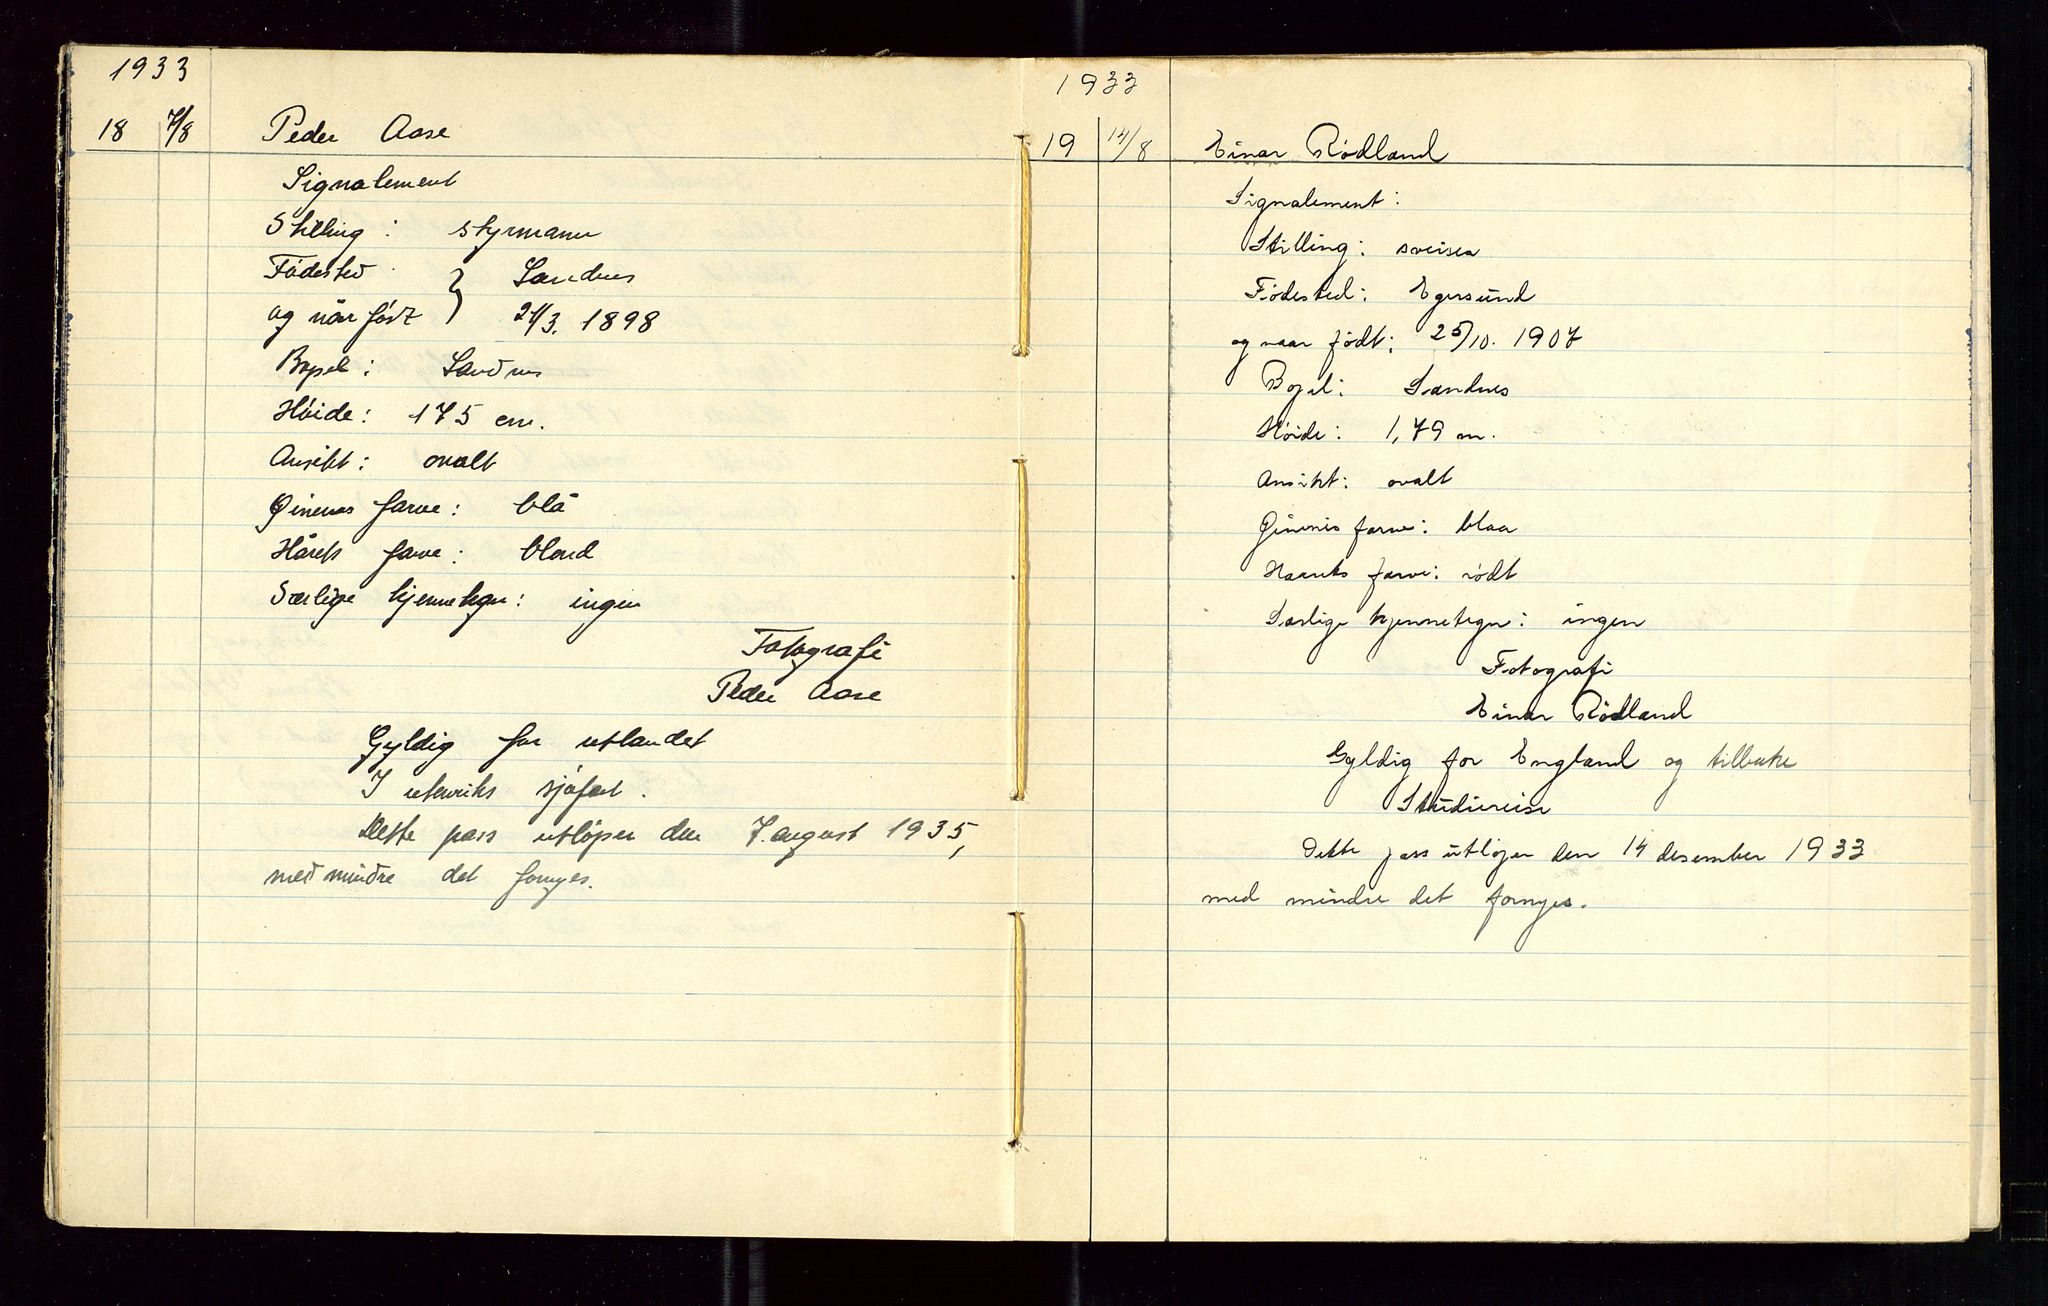 1933
18 7/8 Peder Aase
Signalement
Stilling: styrmann
Fødested } Sandnes
og når født 21/3. 1898
Bopel: Sandnes
Høide: 175 cm.
Ansikt: ovalt
Øinenes farve: blå
Hårets farve: blond
Særlige kjennetegn: ingen
Fotografi
Peder Aase
Gyldig for utlandet
I utenriks sjøfart.
Dette pass utløper den 7. august 1935,
med mindre det fornyes.
1933
19 14/8 Einar Rødland
Signalement:
Stilling: sveiser
Fødested: Egersund
og naar født: 25/10. 1907
Bopel: Sandnes
Høide: 1,79 m.
Ansikt: ovalt
Øinenes farve: blaa
Haarets farve: rødt
Særlige kjennetegn: ingen
Fotografi
Einar Rødland
Gyldig for England og tilbake
Studiereise
Dette pass utløper den 14 desember 1933
med mindre det fornyes.